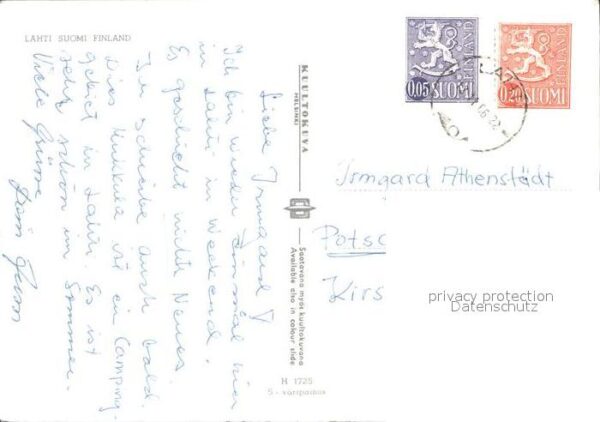 LAHTI SUOMI FINLAND
Liebe Irmgard!
Ich bin wieder einmal hier
in Lahti im Weekend.
Es geschieht nichts Neues
Du schreibe auch bald.
Dies Mukkula ist ein Camping-
gebiet in Lahti. Es ist
sehr schön im Sommer.
Viele Grüsse
KUULTOKUVA
HELSINKI
Saatavana myös kuultokuvana
Available also in colour slide
H 1725
5 - väripainos
0,05 SUOMI FINLAND
0,20 SUOMI FINLAND
LAHTI
Irmgard Athenstädt
Potsd
Kirs
privacy protection
Datenschutz